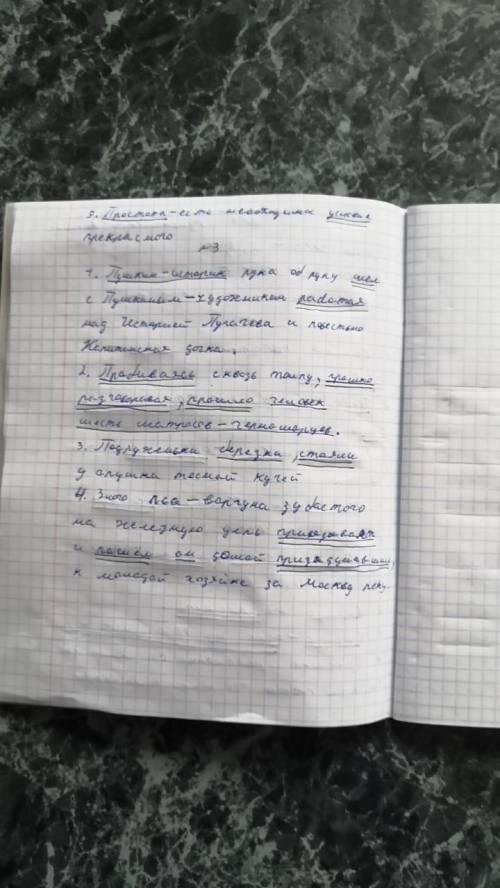 9. Простота - есть необходимое условие
прекрасного
№3
1. Пушкин-историк рука об руку шел
с Пушкиным-художником работая
над Историей Пугачева и повестью
Капитанская дочка.
2. Пробиваясь сквозь толпу, громко
разговаривая, прошло человек
шесть матросов-черноморцев.
3. Подруженьки березки, стояли
у опушки тесной кучей
4. Злого пса-ворчуна зубастого
на железную цепь привязывает
и пошел он домой призадумавшись,
к молодой хозяйке за Москва реку.